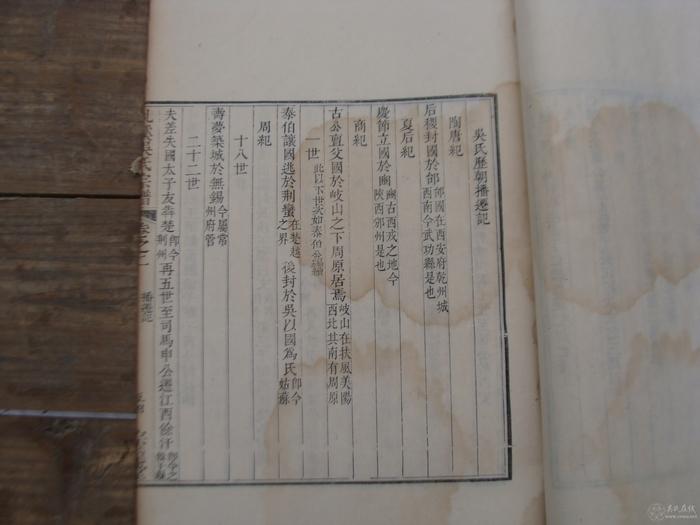 吳氏歷朝播遷記
陶唐紀
后稷封國於邰邰國在西安府乾州城西南今武功縣是也
夏后紀
慶節立國於豳豳古西戎之地今陝西邠州是也
商紀
古公亶父國於岐山之下周原居焉岐山在扶風美陽西北其南有周原
一世此以下世次如泰伯公
泰伯讓國逃於荆蠻在楚越之界後封於吳以國爲氏卽今姑蘇
周紀
十八世
壽夢築城於無錫今屬常州府管
二十二世
夫差失國太子友奔楚卽今荆州再五世至司馬申公遷江西餘汗卽今之
宗譜
卷之一
播遷記